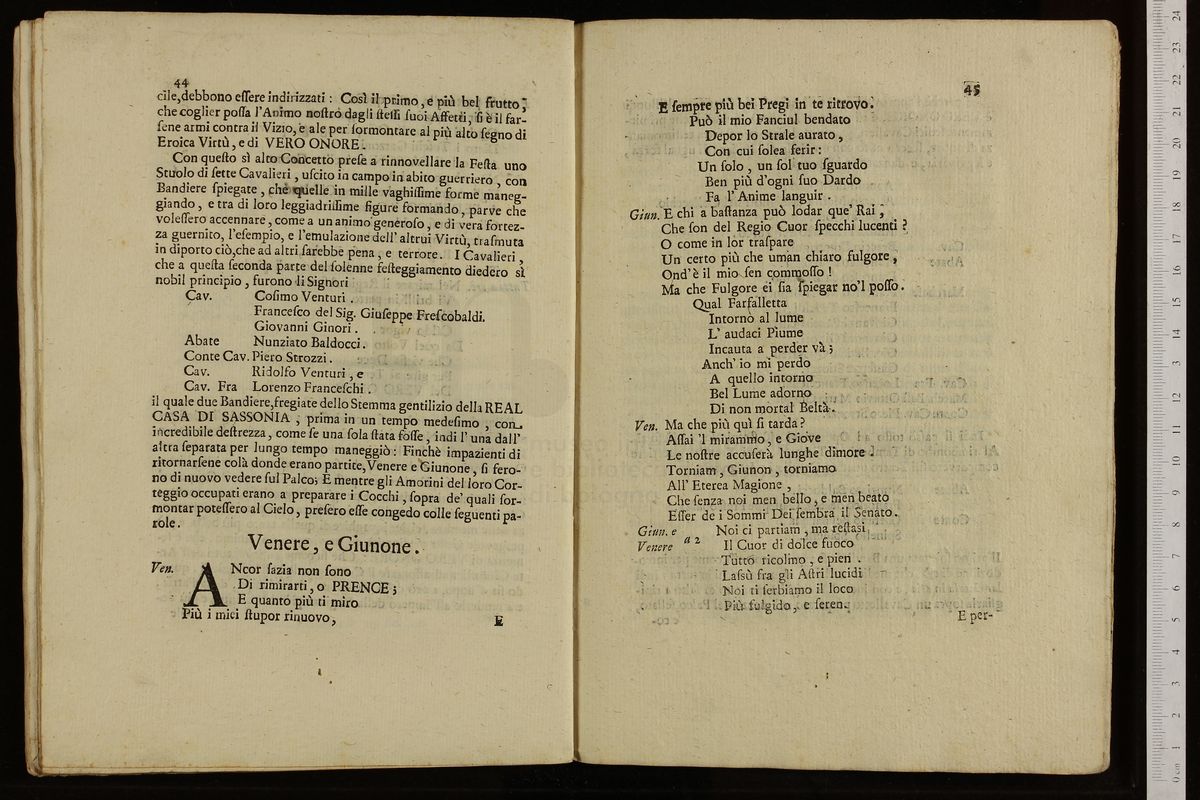 44
cile,debbono eſſere indirizzati : Così il primo, e più bel frutto,
che coglier poſſa l'Animo noſtro dagli ſteſſi ſuoi Affetti, ſi è il far-
ſene armi contra il Vizio, e ale per ſormontare al più alto ſegno di
Eroica Virtù, e di VERO ONORE.
Con queſto sì alto Concetto preſe a rinnovellare la Feſta uno
Stuolo di ſette Cavalieri , uſcito in campo in abito guerriero , con
Bandiere ſpiegate , che quelle in mille vaghiſſime forme maneg-
giando , e tra di loro leggiadriſſime figure formando, parve che
voleſſero accennare, come a un animo generoſo, e di vera fortez-
za guernito, l'eſempio, e l'emulazione dell' altrui Virtù, traſmuta
in diporto ciò,che ad altri ſarebbe pena, e terrore. I Cavalieri,
che a queſta ſeconda parte del ſolenne feſteggiamento diedero sì
nobil principio , furono li Signori
Cav. Coſimo Venturi .
Franceſco del Sig. Giuſeppe Freſcobaldi.
Giovanni Ginori .
Abate Nunziato Baldocci.
Conte Cav. Piero Strozzi .
Cav. Ridolfo Venturi , e
Cav. Fra Lorenzo Franceſchi .
il quale due Bandiere,fregiate dello Stemma gentilizio della REAL
CASA DI SASSONIA , prima in un tempo medeſimo , con
incredibile deſtrezza, come ſe una ſola ſtata foſſe , indi l' una dall'
altra ſeparata per lungo tempo maneggiò : Finchè impazienti di
ritornarſene colà donde erano partite, Venere e Giunone, ſi fero-
no di nuovo vedere ſul Palco; E mentre gli Amorini del loro Cor-
teggio occupati erano a preparare i Cocchi, ſopra de' quali ſor-
montar poteſſero al Cielo, preſero eſſe congedo colle ſeguenti pa-
role.
Venere, e Giunone.
Ven. ANcor ſazia non ſono
Di rimirarti, o PRENCE ;
E quanto più ti miro
Più i miei ſtupor rinuovo,
E
45
E ſempre più bei Pregi in te ritrovo.
Può il mio Fanciul bendato
Depor lo Strale aurato ,
Con cui ſolea ferir :
Un ſolo , un ſol tuo ſguardo
Ben più d'ogni ſuo Dardo
Fa l' Anime languir .
Giun. E chi a baſtanza può lodar que' Rai ,
Che ſon del Regio Cuor ſpecchi lucenti ?
O come in lor traſpare
Un certo più che uman chiaro fulgore,
Ond'è il mio ſen commoſſo !
Ma che Fulgore ei ſia ſpiegar no'l poſſo.
Qual Farfalletta
Intorno al lume
L' audaci Piume
Incauta a perder và ;
Anch' io mi perdo
A quello intorno
Bel Lume adorno
Di non mortal Beltà.
Ven. Ma che più quì ſi tarda ?
Aſſai 'l mirammo, e Giove
Le noſtre accuſerà lunghe dimore.
Torniam , Giunon , torniamo
All' Eterea Magione ,
Che ſenza noi men bello, e men beato
Eſſer de i Sommi Dei ſembra il Senato.
Giun. e Noi ci partiam , ma reſtaſi
Venere a 2 Il Cuor di dolce fuoco
Tutto ricolmo , e pien .
Laſsù fra gli Aſtri lucidi
Noi ti ſerbiamo il loco
Più fulgido, e ſeren.
E per-